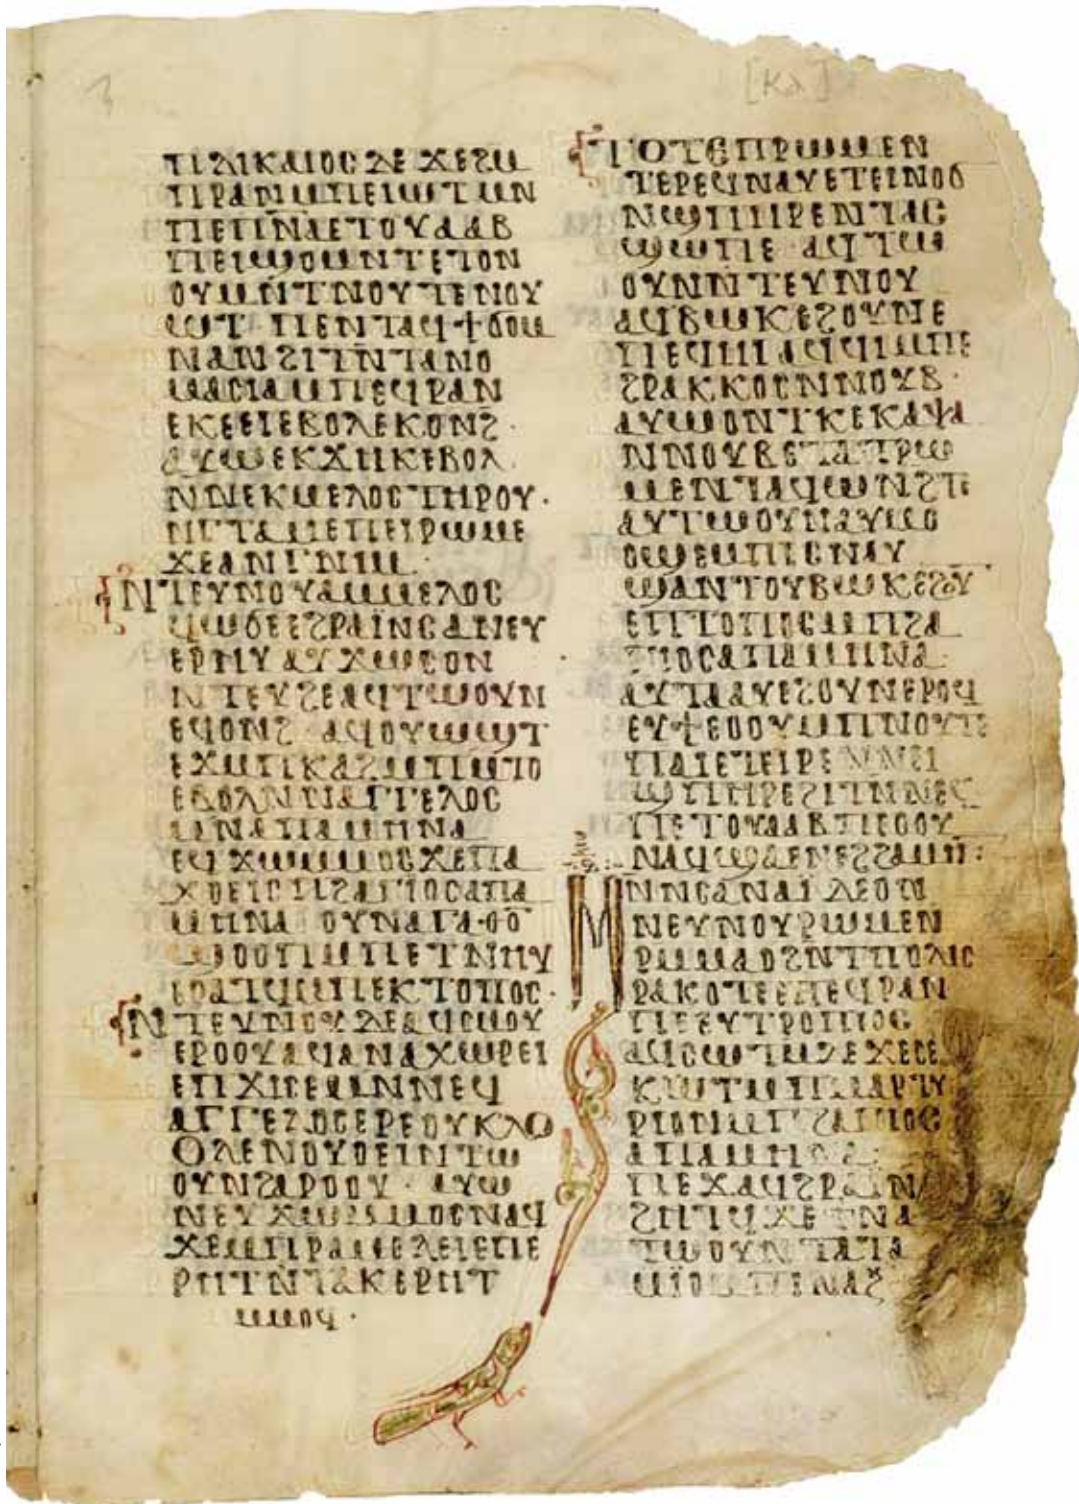 ⲡⲇⲓⲕⲁⲓⲟⲥⲇⲉϫⲉϩⲙ
ⲡⲣⲁⲛⲙⲡⲉⲓⲱⲧⲙⲛ
ⲡⲉⲡⲛⲁⲉⲧⲟⲩⲁⲁⲃ
ⲡⲉⲓϣⲟⲙⲛⲧⲉⲧⲟⲛ
ⲟⲩⲙⲛⲧⲛⲟⲩⲧⲉⲛⲟⲩ
ⲱⲧ· ⲡⲉⲛⲧⲁϥϯϭⲟⲙ
ⲛⲁⲛϩⲓⲧⲛⲧⲁⲛⲟ
ⲙⲁⲥⲓⲁⲙⲡⲉϥⲣⲁⲛ
ⲉⲕⲉⲉⲓⲉⲃⲟⲗⲉⲕⲟⲛϩ·
ⲁⲩⲱⲉⲕϫⲏⲕⲉⲃⲟⲗ
ⲛⲛⲉⲕⲙⲉⲗⲟⲥⲧⲏⲣⲟⲩ·
ⲛⲅⲧⲁⲙⲉⲡⲉⲓⲣⲱⲙⲉ
ϫⲉⲁⲛⲅⲛⲓⲙ·
ⲛⲧⲉⲩⲛⲟⲩⲁⲙⲙⲉⲗⲟⲥ
ϥⲱϭⲉⲉϩⲣⲁⲓⲛⲥⲁⲛⲉⲩ
ⲉⲣⲏⲩ ⲁⲩϫⲱⲥⲟⲛ
ⲛⲧⲉⲩϩⲉⲁϥⲧⲱⲟⲩⲛ
ⲉϥⲟⲛϩ ⲁϥⲟⲩⲱϣⲧ
ⲉϫⲙⲡⲕⲁϩⲙⲡⲙⲧⲟ
ⲉⲃⲟⲗⲛⲛⲁⲅⲅⲉⲗⲟⲥ
ⲙⲛⲁⲡⲁⲙⲏⲛⲁ
ⲉϥϫⲱⲙⲙⲟⲥϫⲉⲡⲁ
ϫⲟⲉⲓⲥⲡϩⲁⲅⲓⲟⲥⲁⲡⲁ
ⲙⲏⲛⲁ ⲟⲩⲛⲁⲅⲁⲑⲟ
ϣⲟⲟⲡⲙⲡⲉⲧⲛⲏⲩ
ⲉⲣⲁⲧϥⲙⲡⲉⲕⲧⲟⲡⲟⲥ·
ⲛⲧⲉⲩⲛⲟⲩⲇⲉⲁϥⲥⲙⲟⲩ
ⲉⲣⲟⲟⲩⲁϥⲁⲛⲁⲭⲱⲣⲉⲓ
ⲉⲡϫⲓⲥⲉⲙⲛⲛⲉϥ
ⲁⲅⲅⲉⲗⲟⲥⲉⲣⲉⲟⲩⲕⲗⲟ
ⲟⲗⲉⲛⲟⲩⲟⲉⲓⲛⲧⲱ
ⲟⲩⲛϩⲁⲣⲟⲟⲩ· ⲁⲩⲱ
ⲛⲉⲩϫⲱⲙⲙⲟⲥⲛⲁϥ
ϫⲉⲙⲡⲣⲁⲙⲉⲗⲉⲓⲉⲡⲉ
ⲣⲏⲧⲛⲧⲁⲕⲉⲣⲏⲧ
ⲙⲙⲟϥ·
[ⲕⲁ]
ⲧⲟⲧⲉⲡⲣⲱⲙⲉⲛ
ⲧⲉⲣⲉϥⲛⲁⲩⲉⲧⲉⲓⲛⲟϭ
ⲛϣⲡⲏⲣⲉⲛⲧⲁⲥ
ϣⲱⲡⲉ ⲁϥⲧⲱ
ⲟⲩⲛⲛⲧⲉⲩⲛⲟⲩ
ⲁϥⲃⲱⲕⲉϩⲟⲩⲛⲉ
ⲡⲉϥⲏⲓ ⲁϥϥⲓⲙⲡⲉ
ϩⲣⲁⲕⲕⲟⲥⲛⲛⲟⲩⲃ·
ⲁⲩⲱⲟⲛⲧⲕⲉⲕⲁⲯⲁ
ⲛⲛⲟⲩⲃⲉⲧⲁⲡⲣⲱ
ⲙⲉⲛⲧⲁϥⲱⲛϩⲧⲉ
ⲁⲩⲧⲱⲟⲩⲛⲁⲩⲙⲟ
ⲟϣⲉⲙⲡⲉⲥⲛⲁⲩ
ϣⲁⲛⲧⲟⲩⲃⲱⲕⲉϩⲟⲩ
ⲉⲡⲧⲟⲡⲟⲥⲙⲡϩⲁ
ⲅⲓⲟⲥⲁⲡⲁⲙⲏⲛⲁ·
ⲁⲩⲧⲁⲁⲩⲉϩⲟⲩⲛⲉⲣⲟϥ
ⲉⲩϯⲉⲟⲟⲩⲙⲡⲛⲟⲩⲧⲉ
ⲡⲁⲓⲉⲧⲉⲓⲣⲉⲛⲛⲉⲓ
ϣⲡⲏⲣⲉϩⲓⲧⲛⲛⲉϥ
ⲡⲉⲧⲟⲩⲁⲁⲃⲡⲉⲟⲟⲩ
ⲛⲁϥϣⲁⲉⲛⲉϩϩⲁⲙⲏⲛ:
ⲙⲛⲛⲥⲁⲛⲁⲓ ⲇⲉⲟⲛ
ⲛⲉⲩⲛⲟⲩⲣⲱⲙⲉⲛ
ⲣⲙⲙⲁⲟϩⲛⲧⲡⲟⲗⲓⲥ
ⲣⲁⲕⲟⲧⲉⲉⲡⲉϥⲣⲁⲛ
ⲡⲉⲉⲩⲧⲣⲟⲡⲓⲟⲥ
ⲁϥⲥⲱⲧⲙⲇⲉϫⲉⲥⲉ
ⲕⲱⲧⲙⲡⲙⲁⲣⲧⲩ
ⲣⲓⲟⲛⲙⲡϩⲁⲅⲓⲟⲥ
ⲁⲡⲁⲙⲏⲛⲁ·
ⲡⲉϫⲁϥϩⲣⲁⲓⲛ
ϩⲏⲧϥϫⲉϯⲛⲁ
ⲧⲱⲟⲩⲛⲧⲁⲧⲁ
ⲙⲓⲟⲙⲡⲓⲛⲁⲝ